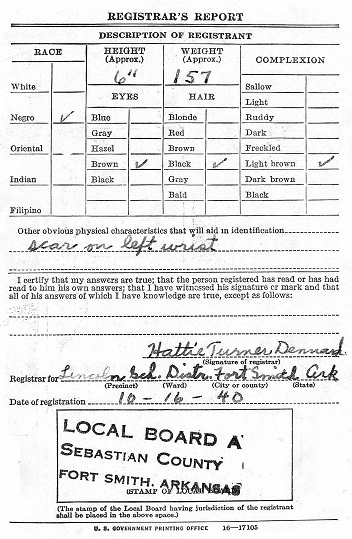 REGISTRAR'S REPORT
DESCRIPTION OF REGISTRANT
RACE
HEIGHT (Approx.)
WEIGHT (Approx.)
COMPLEXION
6" 157
White
EYES
HAIR
Sallow
Light
Negro ✓
Blue
Blonde
Ruddy
Gray
Red
Dark
Oriental
Hazel
Brown
Freckled
Brown ✓
Black ✓
Light brown ✓
Indian
Black
Gray
Dark brown
Bald
Black
Filipino
Other obvious physical characteristics that will aid in identification
scar on left wrist
I certify that my answers are true; that the person registered has read or has had
read to him his own answers; that I have witnessed his signature or mark and that
all of his answers of which I have knowledge are true, except as follows:
Hattie Turner Dennard
(Signature of registrar)
Registrar for Lincoln Sch. Distr. Fort Smith Ark
(Precinct) (Ward) (City or county) (State)
Date of registration 10 - 16 - 40
LOCAL BOARD A
SEBASTIAN COUNTY
FORT SMITH, ARKANSAS
(STAMP OF LOCAL BOARD)
(The stamp of the Local Board having jurisdiction of the registrant
shall be placed in the above space.)
U. S. GOVERNMENT PRINTING OFFICE 16—17105